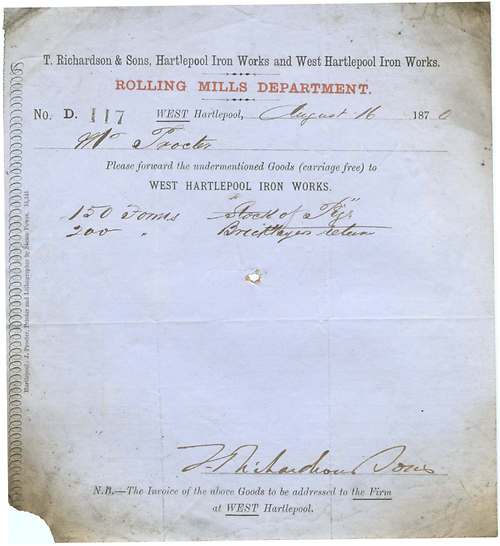 T. Richardson & Sons, Hartlepool Iron Works and West Hartlepool Iron Works.
ROLLING MILLS DEPARTMENT.
No. D. 117 WEST Hartlepool, August 16 1870
Mr Procter
Please forward the undermentioned Goods (carriage free) to
WEST HARTLEPOOL IRON WORKS.
150 Forms Stock of
200 " Bricklayers return
T. Richardson Sons
N.B.—The Invoice of the above Goods to be addressed to the Firm
at WEST Hartlepool.
Hartlepool: J. Procter, Printer and Lithographer by Steam Power.